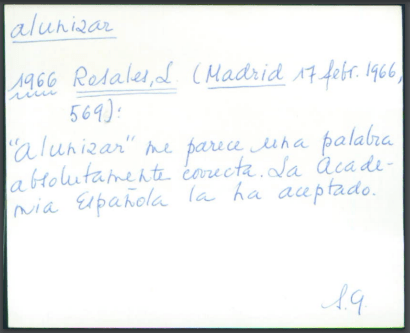 alunizar
1966 Rosales, L. (Madrid 17 febr. 1966,
569):
"Alunizar" me parece una palabra
absolutamente correcta. La Acade-
mia Española la ha aceptado.
S.G